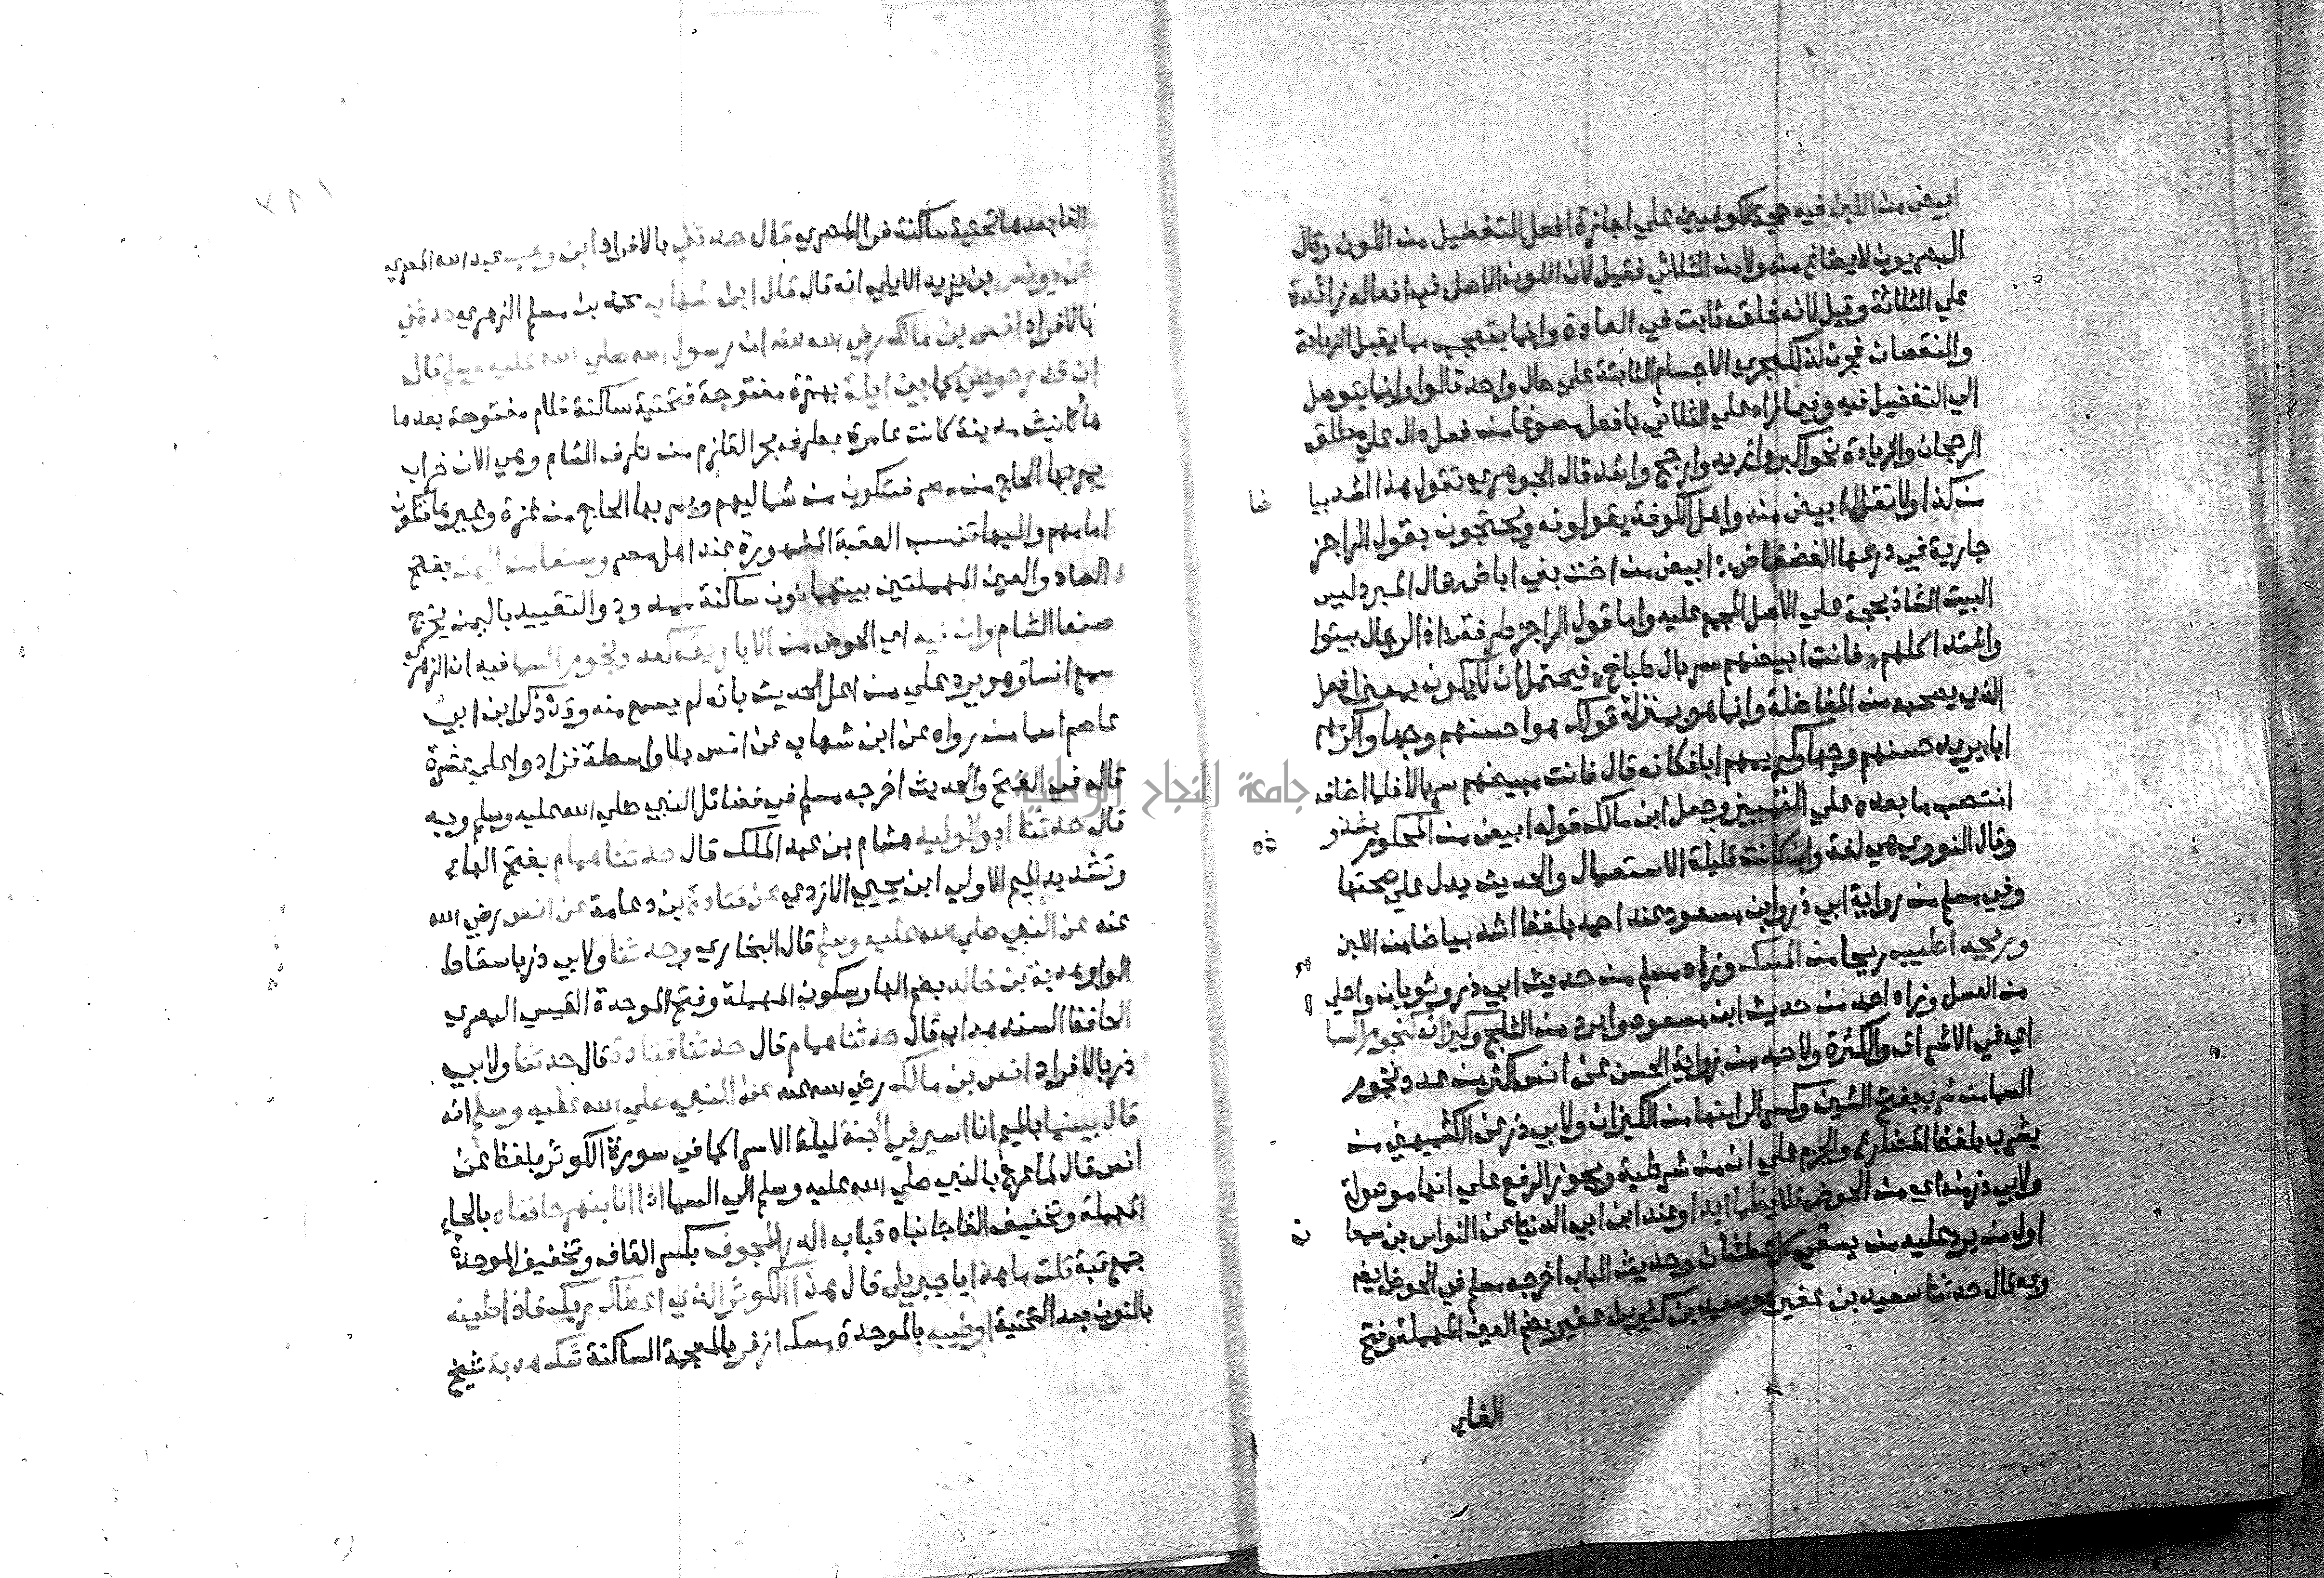 ابيض من اللبن فيه حجة للكوفيين علي اجازة افعل التفضيل من اللون وقال
البصريون لا يصاغ منه ولا من الثلاثي فقيل لان اللون الاصل في افعاله زائدة
علي الثلاثة وقيل لانه خلق ثابت في العادة وانما يتعجب مما يقبل الزيادة
والنقصان فجرت لذلك مجري الاجسام الثابتة علي حال واحد قالوا وانما يتوصل
الي التفضيل فيه وفيما زاد علي الثلاثي بافعل مصوغا من فعل دال علي مطلق
الرجحان والزيادة نحو اكبر وازيد وارجح واشد قال الجوهري تقول هذا اشد بيا
ضا
من كذا ولا تقل ابيض منه واهل الكوفة يقولونه ويحتجون بقول الراجز
جارية في درعها الفضفاض ابيض من اخت بني اباض قال المبرد ليس
البيت الشاذ بحجة علي الاصل المجمع عليه واما قول الراجز طرفة اذا الرجال شتوا
واشتد اكلهم فانت ابيضهم سربال طباخ فيحتمل ان لا يكون بمعني افعل
الذي يصحبه من المفاضلة وانما هو بمنزلة قولك هو احسنهم وجها واكرمهم
ابا يريد حسنهم وجها وكريمهم ابا فكانه قال فانت مبيضهم سربالا فلما اضافه
انتصب ما بعده علي التمييز وجعل ابن مالك قوله ابيض من المحكوم بشذو
ذه
وقال النووي هي لغة وان كانت قليلة الاستعمال والحديث يدل علي صحتها
وفي مسلم من رواية ابي ذر وابن مسعود عند احمد بلفظ اشد بياضا من اللبن
وريحه اطيب ريحا من المسك وزاد مسلم من حديث ابي ذر وثوبان واحلي
من العسل وزاد احمد من حديث ابن مسعود وابرد من الثلج وكيزانه كنجوم السما
اي في الاشراق والكثرة ولاحمد من رواية الحسن عن انس اكثر من عدد نجوم
السما من شرب بفتح الشين وكسر الرا منها من الكيزان ولابي ذر عن الكشميهني من
يشرب بلفظ المضارع والجزم علي ان من شرطية ويجوز الرفع علي انها موصولة
ولابي ذر منه اي من الحوض فلا يظما ابدا وعند ابن ابي الدنيا عن النواس بن سمعا
ن
اول من يرد عليه من يسقي كل عطشان وحديث الباب اخرجه مسلم في الحوض ايضا
وبه قال حدثنا سعيد بن عفير هو سعيد بن كثير بن عفير بضم العين المهملة وفتح
الفاء
الفا بعدها تحتية ساكنة فرا المصري قال حدثني بالافراد ابن وهب عبد الله المصري
عن يونس بن يزيد الايلي انه قال قال ابن شهاب محمد بن مسلم الزهري حدثني
بالافراد انس بن مالك رضي الله عنه ان رسول الله صلي الله عليه وسلم قال
ان قدر حوضي كما بين ايلة بهمزة مفتوحة فتحتية ساكنة فلام مفتوحة بعدها
ها تانيث مدينة كانت عامرة بطرف بحر القلزم من طرف الشام وهي الان خراب
يمر بها الحاج من مصر فتكون من شماليهم ويمر بها الحاج من غزة وغيرها فتكون
امامهم واليها تنسب العقبة المشهورة عند اهل مصر وصنعا من اليمن بفتح
الصاد والعين المهملتين بينهما نون ساكنة ممدود والتقييد باليمن يخرج
صنعا الشام وان فيه اي الحوض من الاباريق كعدد نجوم السما فيه ان الزهري
سمع انسا وهو يرد علي من اعل الحديث بانه لم يسمع منه وقد ذكر ابن ابي
عاصم اسما من رواه عن ابن شهاب عن انس بلا واسطة فزادوا علي عشرة
قاله في الفتح والحديث اخرجه مسلم في فضائل النبي صلي الله عليه وسلم وبه
قال حدثنا ابو الوليد هشام بن عبد الملك قال حدثنا همام بفتح الهاء
وتشديد الميم الاولي ابن يحيي الازدي عن قتادة بن دعامة عن انس رضي الله
عنه عن النبي صلي الله عليه وسلم قال البخاري وحدثنا ولابي ذر باسقاط
الواو هدبة بن خالد بضم الها وسكون المهملة وفتح الموحدة القيسي البصري
الحافظ المسند هداب قال حدثنا همام قال حدثنا قتادة قال حدثنا ولابي
ذر بالافراد انس بن مالك رضي الله عنه عن النبي صلي الله عليه وسلم انه
قال بينما بالميم انا اسير في الجنة ليلة الاسرا كما في سورة الكوثر بلفظ عن
انس قال لما عرج بالنبي صلي الله عليه وسلم الي السما اذا انا بنهر حافتاه بالحاء
المهملة وتخفيف الفا جانباه قباب الدر المجوف بكسر القاف وتخفيف الموحدة
جمع قبة قلت ما هذا يا جبريل قال هذا الكوثر الذي اعطاك ربك فاذا طينه
بالنون بعد التحتية او طيبه بالموحدة مسك اذفر بالمعجمة الساكنة شك هدبة شيخ
جامعة النجاح الوطنية